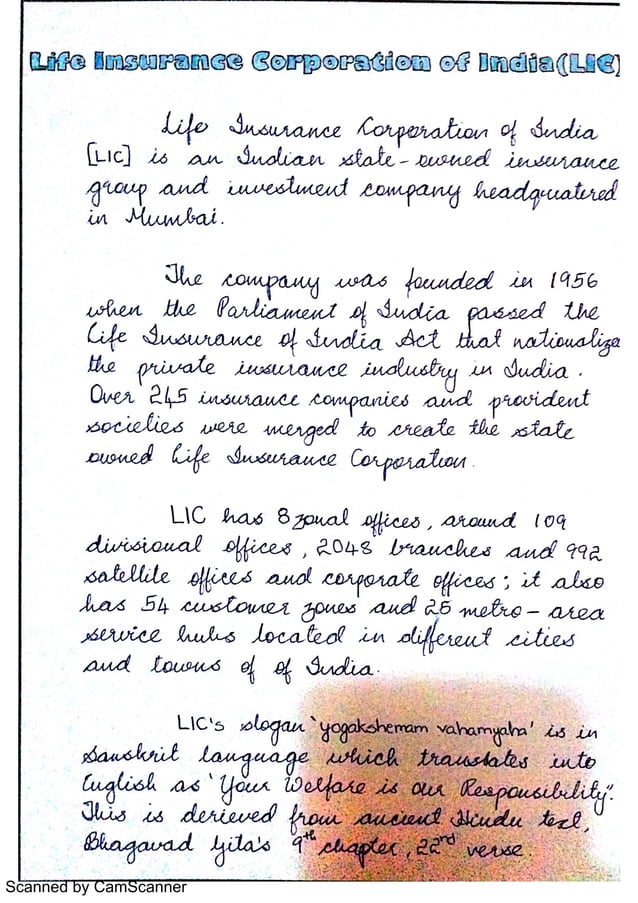 Life Insurance Corporation of India(LIC)
Life Insurance Corporation of India
[LIC] is an Indian state-owned insurance
group and investment company headquatered
in Mumbai.
The company was founded in 1956
when the Parliament of India passed the
Life Insurance of India Act that nationalize
the private insurance industry in India.
Over 245 insurance companies and provident
societies were merged to create the state
owned Life Insurance Corporation.
LIC has 8 zonal offices, around 109
divisional offices, 2048 branches and 992
satellite offices and corporate offices; it also
has 54 customer zones and 25 metro-area
service hubs located in different cities
and towns of of India.
LIC's slogan 'yogakshemam vahamyaha' is in
Sanskrit language which translates into
English as 'Your Welfare is our Responsibility".
This is derieved from ancient Hindu text,
Bhagavad Gita's 9th chapter, 22nd verse.
Scanned by CamScanner